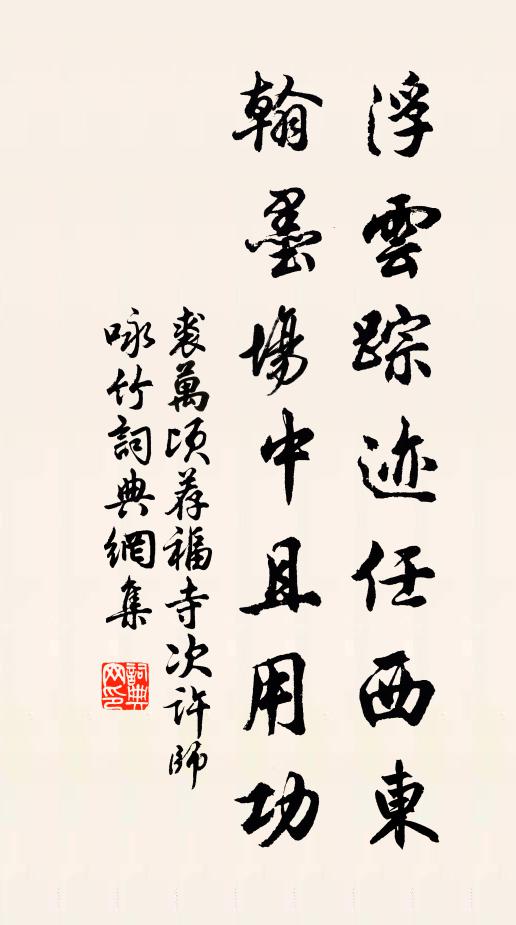 浮雲踪迹任西東
翰墨場中且用功
裘萬頃荐福寺次許師
咏竹詞典網集
詞典网印